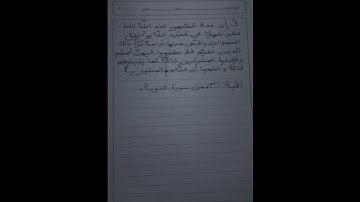 إن عدة الشهور عند الله اثنا
عشر شهرا في كتاب الله يوم خلق
السموات والأرض منها أربعة حرم ذلك
الدين القيم فلا تظلموا فيهن أنفسكم
وقاتلوا المشركين كافة كما يقاتلونكم
كافة واعلموا أن الله مع المتقين
الآية: ٣٦ من سورة التوبة.